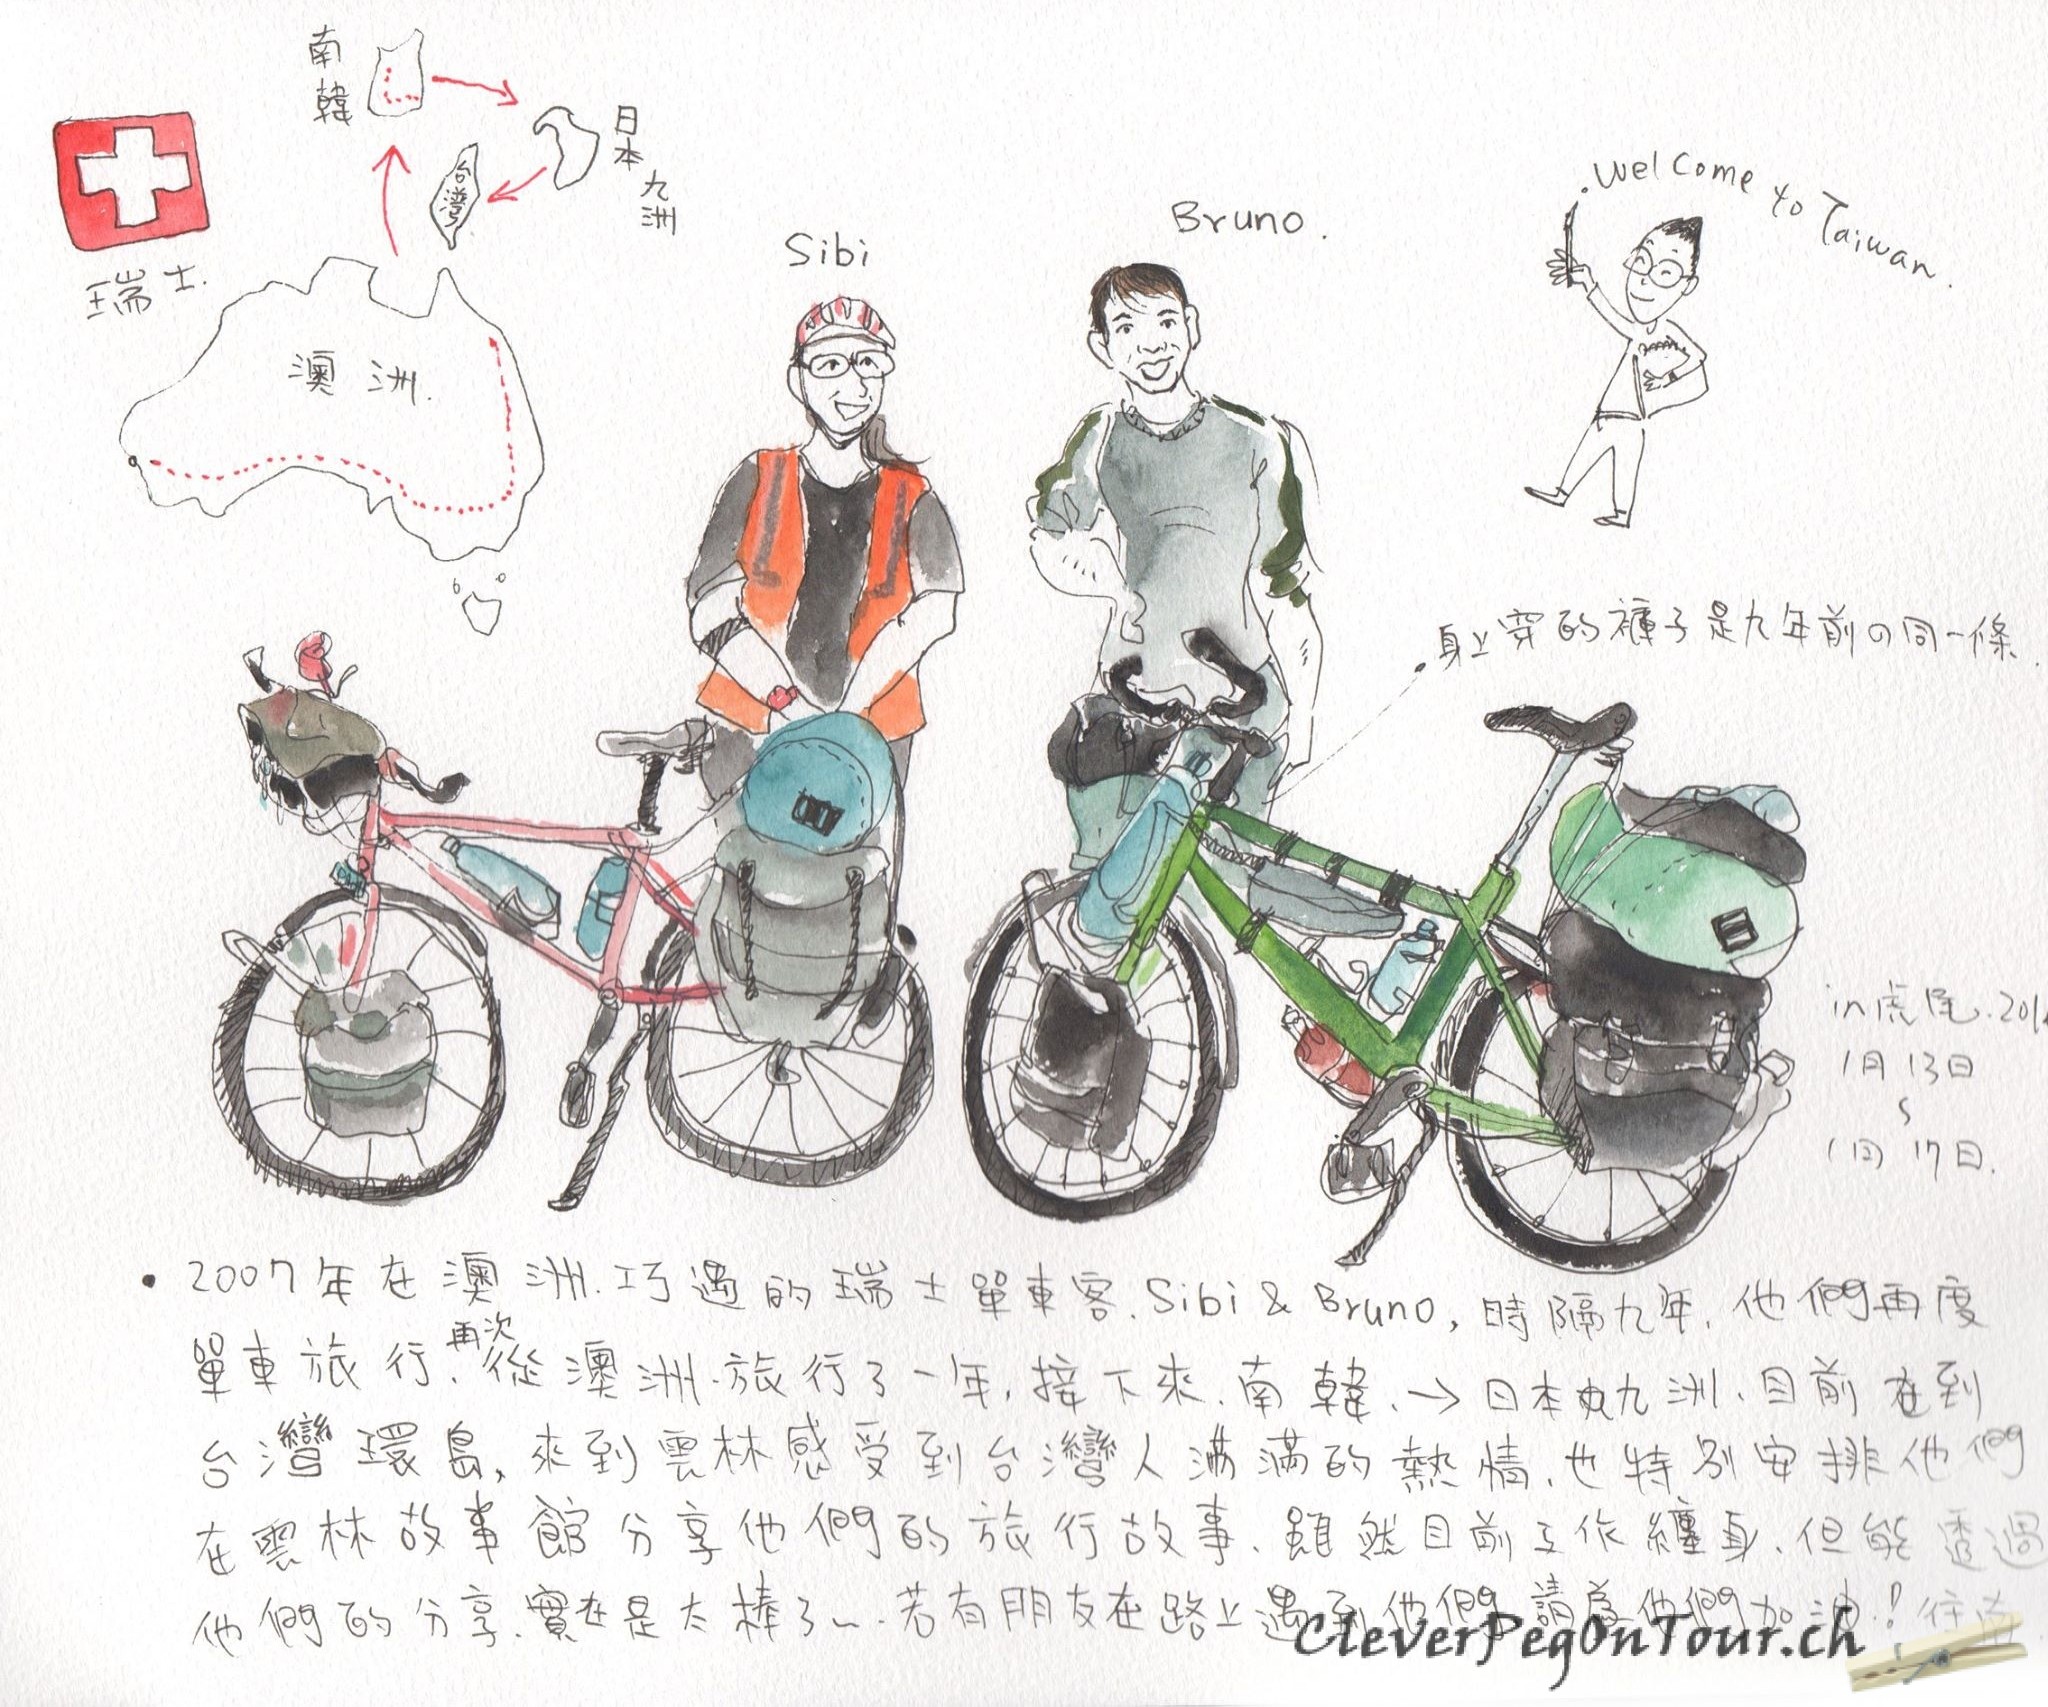 南韓
日本九洲
台灣
瑞士.
澳洲.
Sibi
Bruno.
.Welcome to Taiwan.
.身上穿的褲子是九年前の同一條.
in虎尾.201
1月13日
~
1月17日.
• 2007年在澳洲.巧遇的瑞士單車客.Sibi & Bruno,時隔九年.他們再度
單車旅行.再次從澳洲.旅行了一年,接下來.南韓.→日本九洲.目前在到
台灣環島,來到雲林感受到台灣人滿滿的熱情.也特別安排他們
在雲林故事館分享他們的旅行故事.雖然目前工作纏身.但能透過
他們的分享.實在是太棒了~.若有朋友在路上遇到他們請為他們加油!往南.
CleverPegOnTour.ch